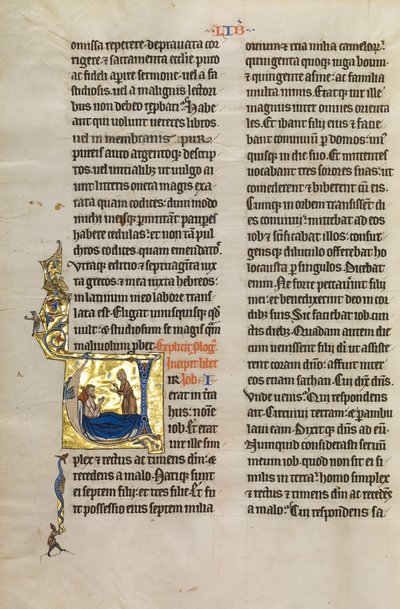 LIB
omissa repetere. deprauata cor
rigere. & sacramenta ecclie puro
ac fideli apire sermone. uel a fa
stidiosis. uel a malignis lectori
bus non debeo repbari. Habe
ant qui uolunt ueteres libros.
uel in membranis pur
pureis auro argentoq; descrip
tos. uel uncialib; ut uulgo ai
unt litteris onera magis exa
rata quam codices: dum modo
michi meisq; pmittant paupes
habere cedulas. et non tam pul
chros codices. quam emendatos.
Vtraq; editio & septuaginta iux
ta grecos. & mea iuxta hebreos:
in latinum meo labore trans
lata est. Eligat unusquisq; qd
uult: & studiosum se magis qm
maliuolum pbet. Explicit plog'
Incipit liber
Iob. I
VIR
erat in tra
hus. noie
iob. Et erat
uir ille sim
plex & rectus ac timens dm: &
recedens a malo. Natiq; sunt
ei septem filii. et tres filie. Et fu
it possessio eius septem milia
ouium. & tria milia camelorum.
quingenta quoq; iuga boum.
& quingente asine. ac familia
multa nimis. Eratq; uir ille
magnus inter omnes orienta
les. Et ibant filii eius & facie
bant conuiuium p domos. un'
quisq; in die suo. Et mittentes
uocabant tres sorores suas. ut
comederent & biberent cu eis.
Cumq; in orbem transissent di
es conuiuii. mittebat ad eos
iob & scificabat illos. consur
gensq; diluculo offerebat ho
locausta p singulos. Dicebat
enim. Ne forte peccauerint filii
mei. et benedixerint deo in cor
dib; suis. Sic faciebat iob. cun
ctis dieb;. Quadam autem die
cum uenissent filii di. ut assiste
rent coram dno: affuit inter
eos etiam sathan. Cui dix dns.
Vnde uenis. Qui respondens
ait. Circuiui terram. & pambu
laui eam. Dixitq; dns ad eu.
Nunquid considerasti seruum
meum iob. quod non sit ei si
milis in terra. homo simplex
& rectus & timens dm ac recedens
a malo. Cui respondens sa